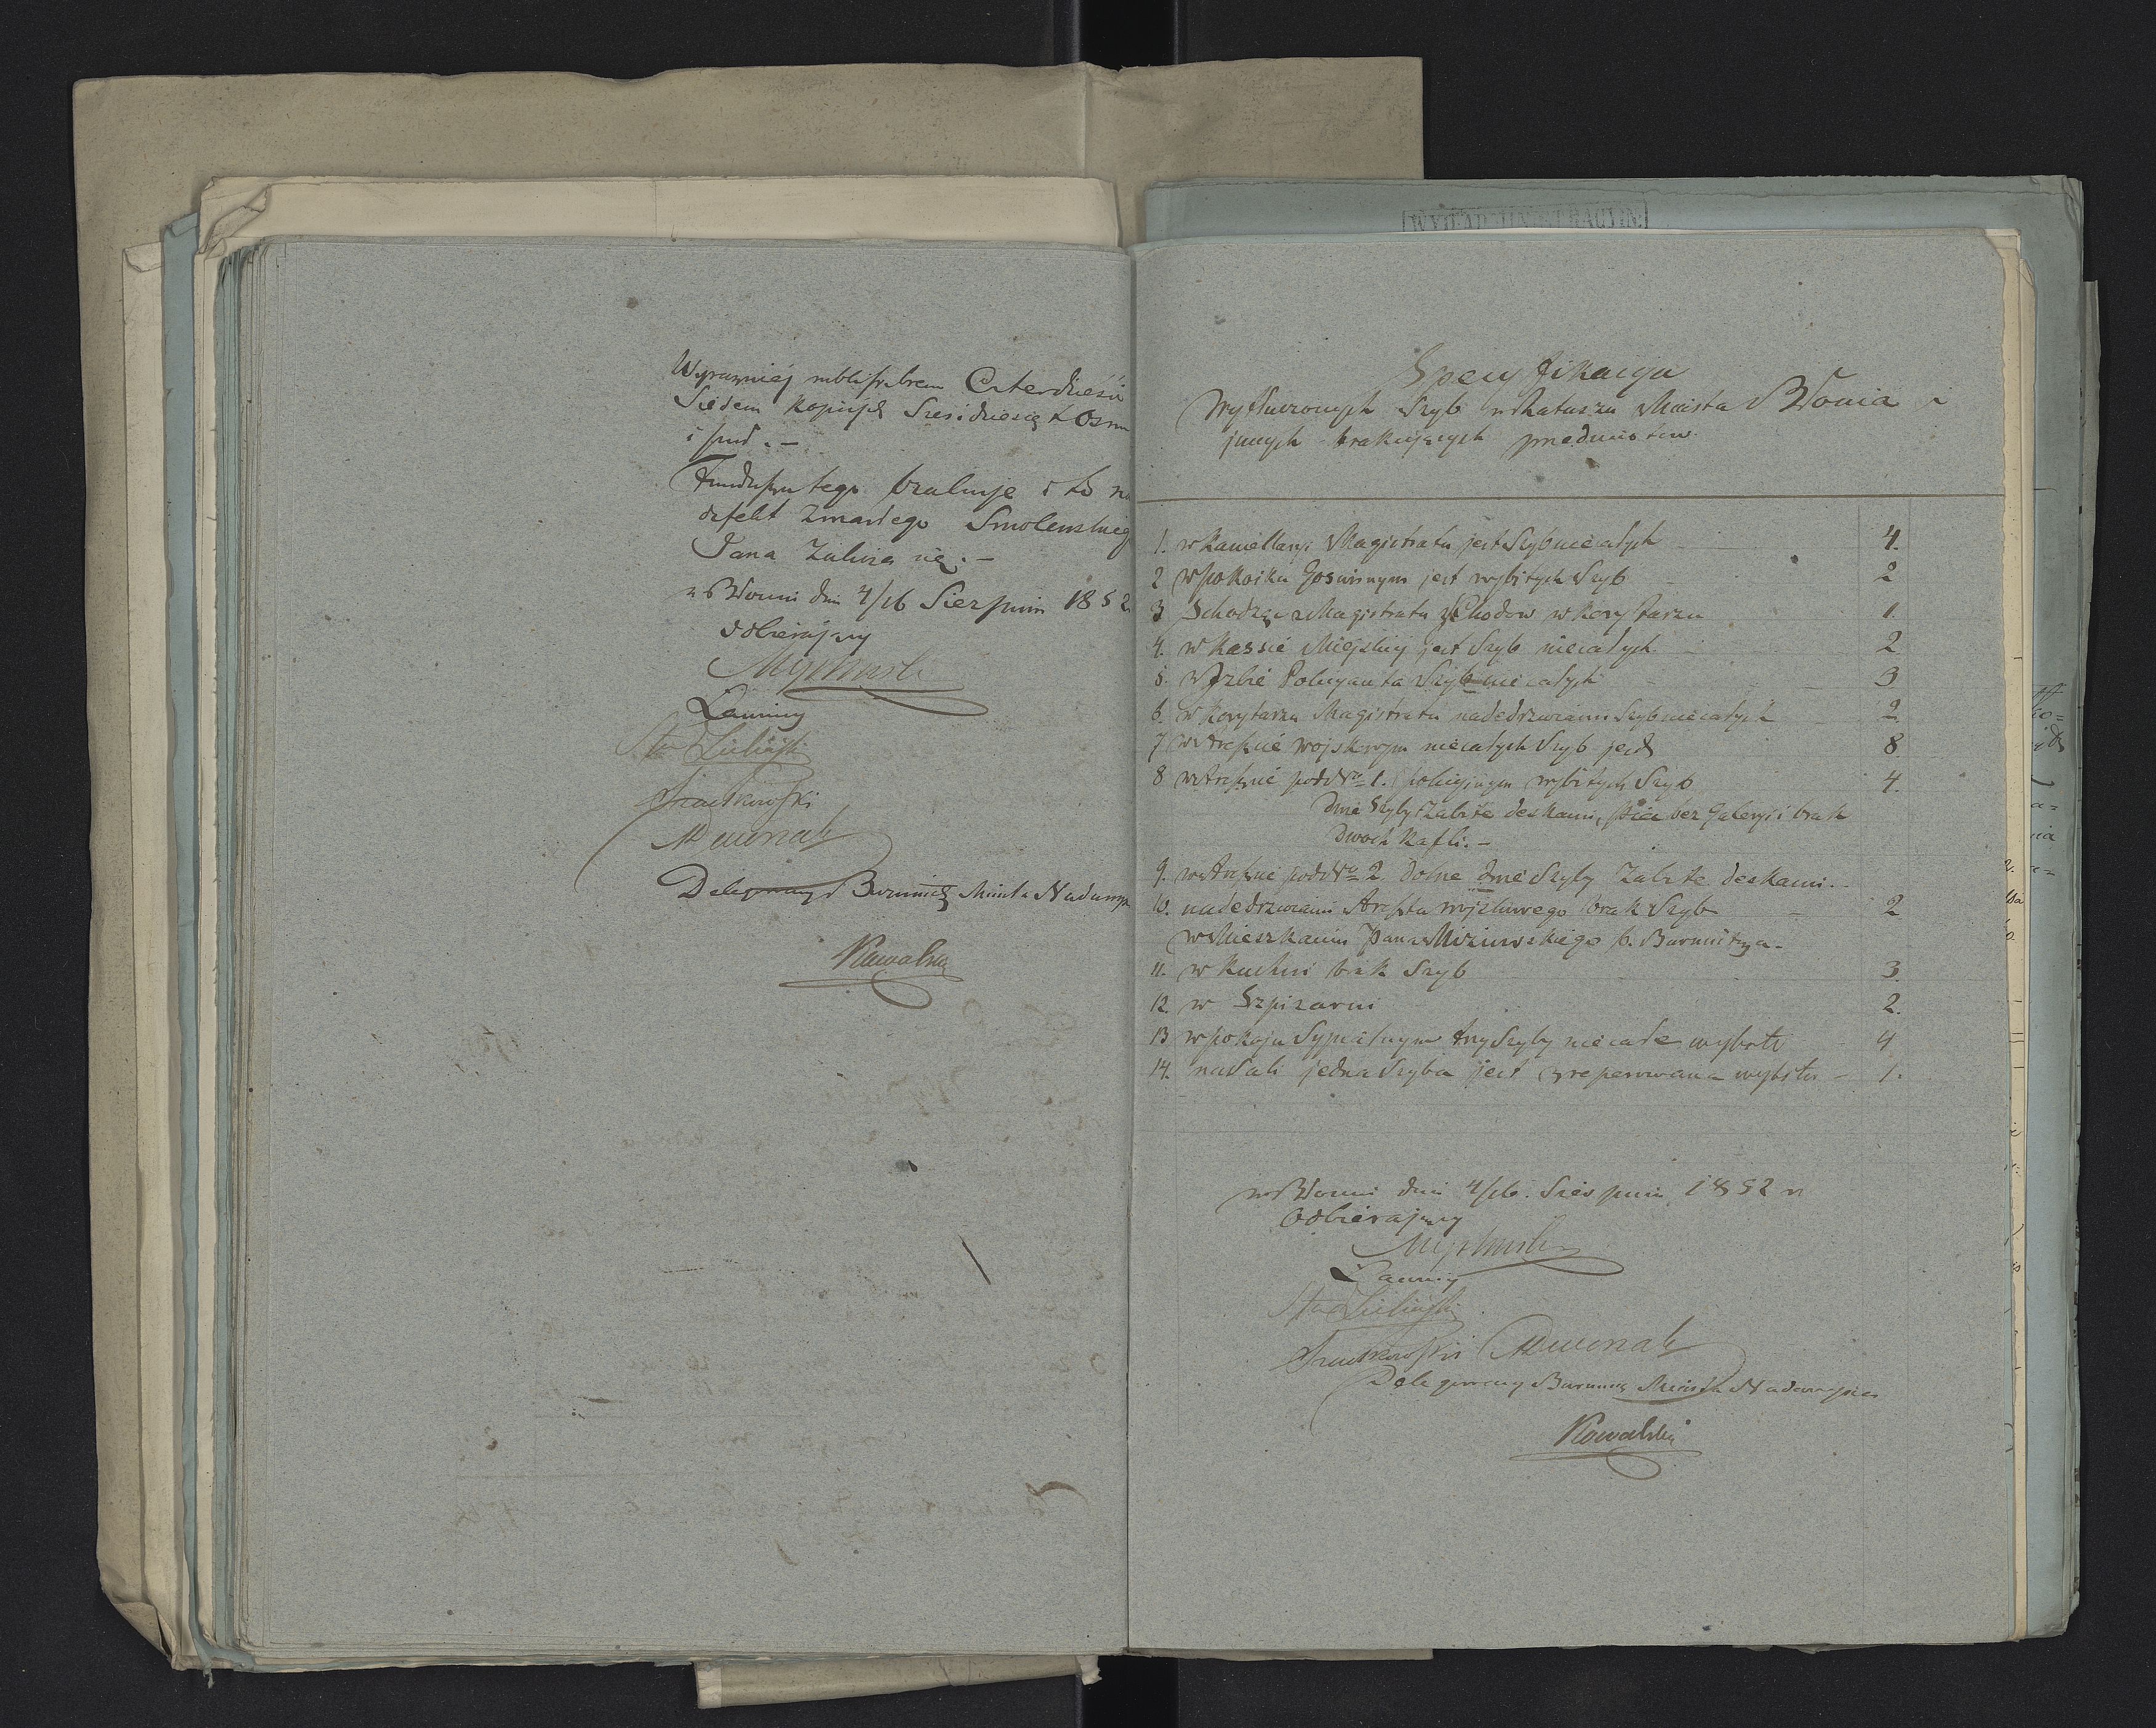 Wyraźniej rubli srebrem Czterdzieści
Siedem kopiejek Sześćdziesiąt Osm
i puł. —
Funduszu tego brakuje i to na
defekt Zmarłego Smolenskieg
Jana Zalicza się. —
w Błoniu dnia 4/16 Sierpnia 1852
odbierający
Ławnicy
Delegowany Burmistrz Miasta Nadarzyna
Kowalski
Specyfikacya
Wytłuczonych Szyb w Ratuszu Miasta Błonia i
innych brakujących przedmiotow
1. w Kancellaryi Magistratu jest Szyb niecałych 4.
2 w pokoiku Goscinnym jest wybitych Szyb 2
3 Schodząc z Magistratu ze Schodow w Korytarzu 1.
4. w Kassie Miejskiej jest Szyb niecałych 2
5. w Izbie Policyanta Szyb niecałych 3
6. w Korytarzu Magistratu nadedrzwiami Szyb niecałych 2
7 w Areszcie wojskowym niecałych Szyb jest 8
8 w Areszcie pod No 1. policyjnym wybitych Szyb 4.
Dwie Szyby Zabite deskami, piec bez Galeryi i brak
Dwoch Kafli. —
9. w Areszcie pod No 2. Dolne dwie Szyby Zabite deskami.
10. nadedrzwiami Aresztu wojskowego brak Szyb 2
w Mieszkaniu Pana b. Burmistrza.
11. w Kuchni brak Szyb 3
12. w Szpizarni 2.
13 w pokoju Sypialnym trzy Szyby niecałe wybite 4
14. na Sali jedna Szyba jest zreperowana wybita 1.
w Błoniu dnia 4/16. Sierpnia 1852 r
Odbierający
Ławnicy
Delegowany Burmistrz Miasta Nadarzyna
Kowalski